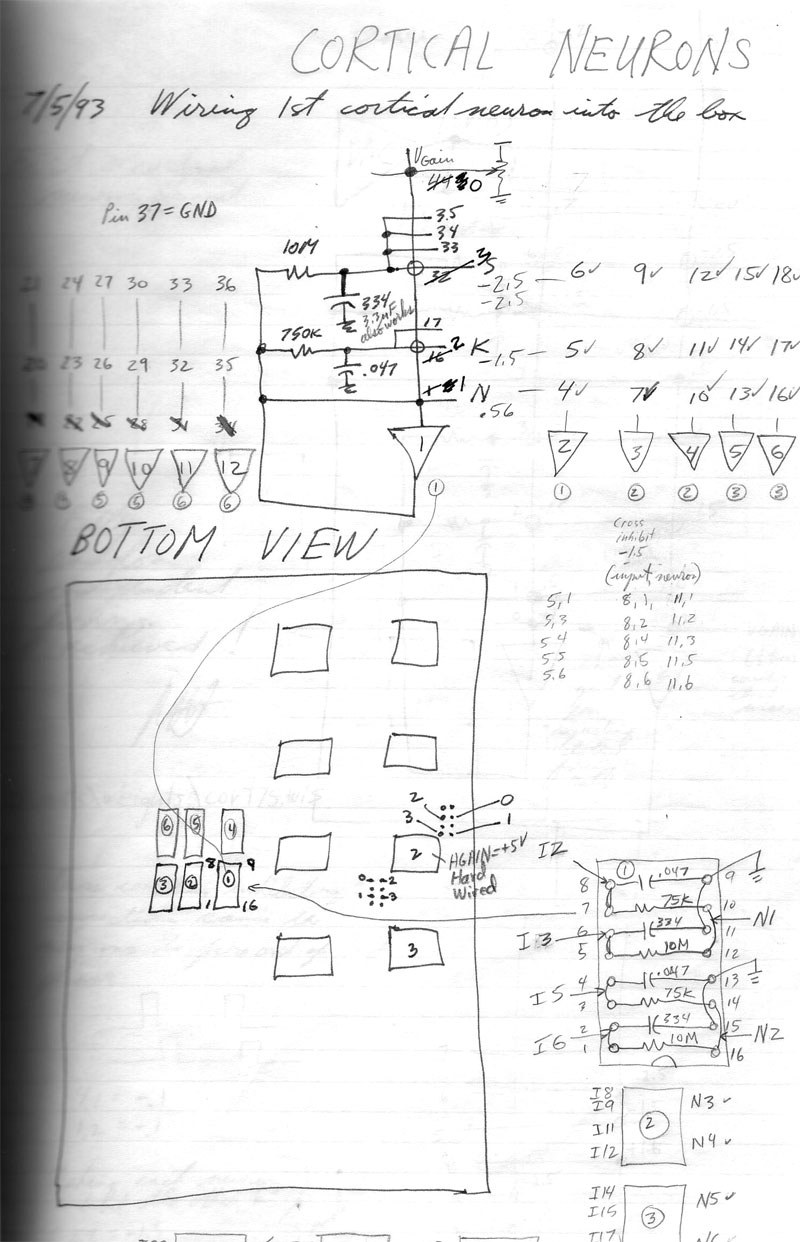 CORTICAL NEURONS
7/5/93 Wiring 1st cortical neuron into the box
VGain
I
0
Pin 37=GND
3.5
34
33
10M
S
-2.5
-2.5
6✓ 9✓ 12✓ 15✓ 18✓
24 27 30 33 36
334
3.3µF
also works
17
750K
2 K
-1.5
5✓ 8✓ 11✓ 14✓ 17✓
.047
23 26 29 32 35
1 N
.56
4✓ 7✓ 10✓ 13✓ 16✓
7 8 9 10 11 12
1
2 3 4 5 6
5 6 6 6
1
1 2 2 3 3
BOTTOM VIEW
Cross
inhibit
-1.5
(input, neuron)
5,1 8,1, 11,1
5,3 8,2 11,2
5 4 8,4 11,3
5,5 8,5 11,5
5,6 8,6 11,6
2 0
3 1
6 5 4
2
AGAIN=+5V
Hard
Wired
0 2
1 3
8 9
3 2 1
1 16
3
1
I2 8 .047 9
7 75K 10
I3 6 334 11 N1
5 10M 12
I5 4 .047 13
3 75K 14
I6 2 334 15 N2
1 10M 16
I8
I9
N3 ✓
I11
2
I12
N4 ✓
I14
I15
N5 ✓
3
I17